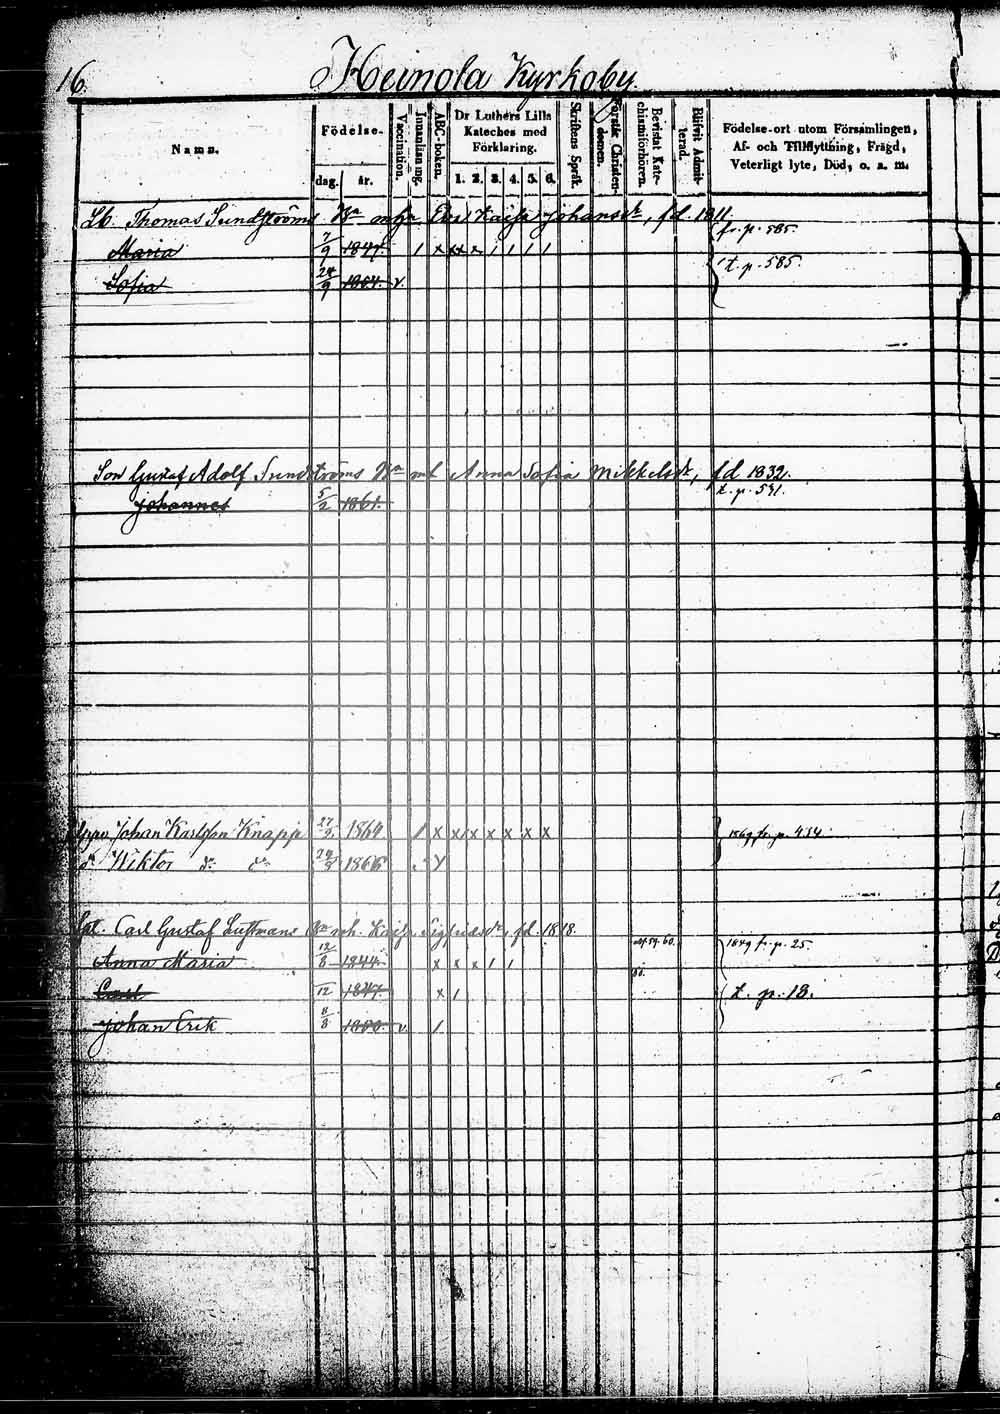 16.
Heinola Kyrkoby.
Namn.
Födelse-
dag. år.
Vaccination.
Innanläsning.
ABC-boken.
Dr Luthers Lilla Kateches med Förklaring.
1. 2. 3. 4. 5. 6.
Skriftens Språk.
Förstår Christendomen.
Bevistat Katechismiförhören.
Blifvit Admitterad.
Födelse-ort utom Församlingen,
Af- och Tillflyttning, Frägd,
Veterligt lyte, Död, o. a. m.
Thomas Sundströms Eva Kajsa Johansdr, fd. 1811.
fr. p. 585.
Maria 7/9 1847. 1 x x x x 1 1 1 1
t. p. 585.
Sofia 24/9 1854. v.
Son Gustaf Adolf Sundströms Anna Sofia Mikkelsdr, fd 1832.
t. p. 591.
Johannes 5/2 1861.
Johan Karlsson Knapp 1864 1 x x x x x x x
fr. p. 414.
dr Wiktor dr dr 1866
Carl Gustaf Luttmans Kajsa Sigfridsdr, fd. 1818.
59. 60.
1849 fr. p. 25.
Anna Maria 12/8 1844. x x x 1 1
60.
Carl /12 1847. x 1
t. p. 18.
Johan Erik 8/8 1850. v. 1